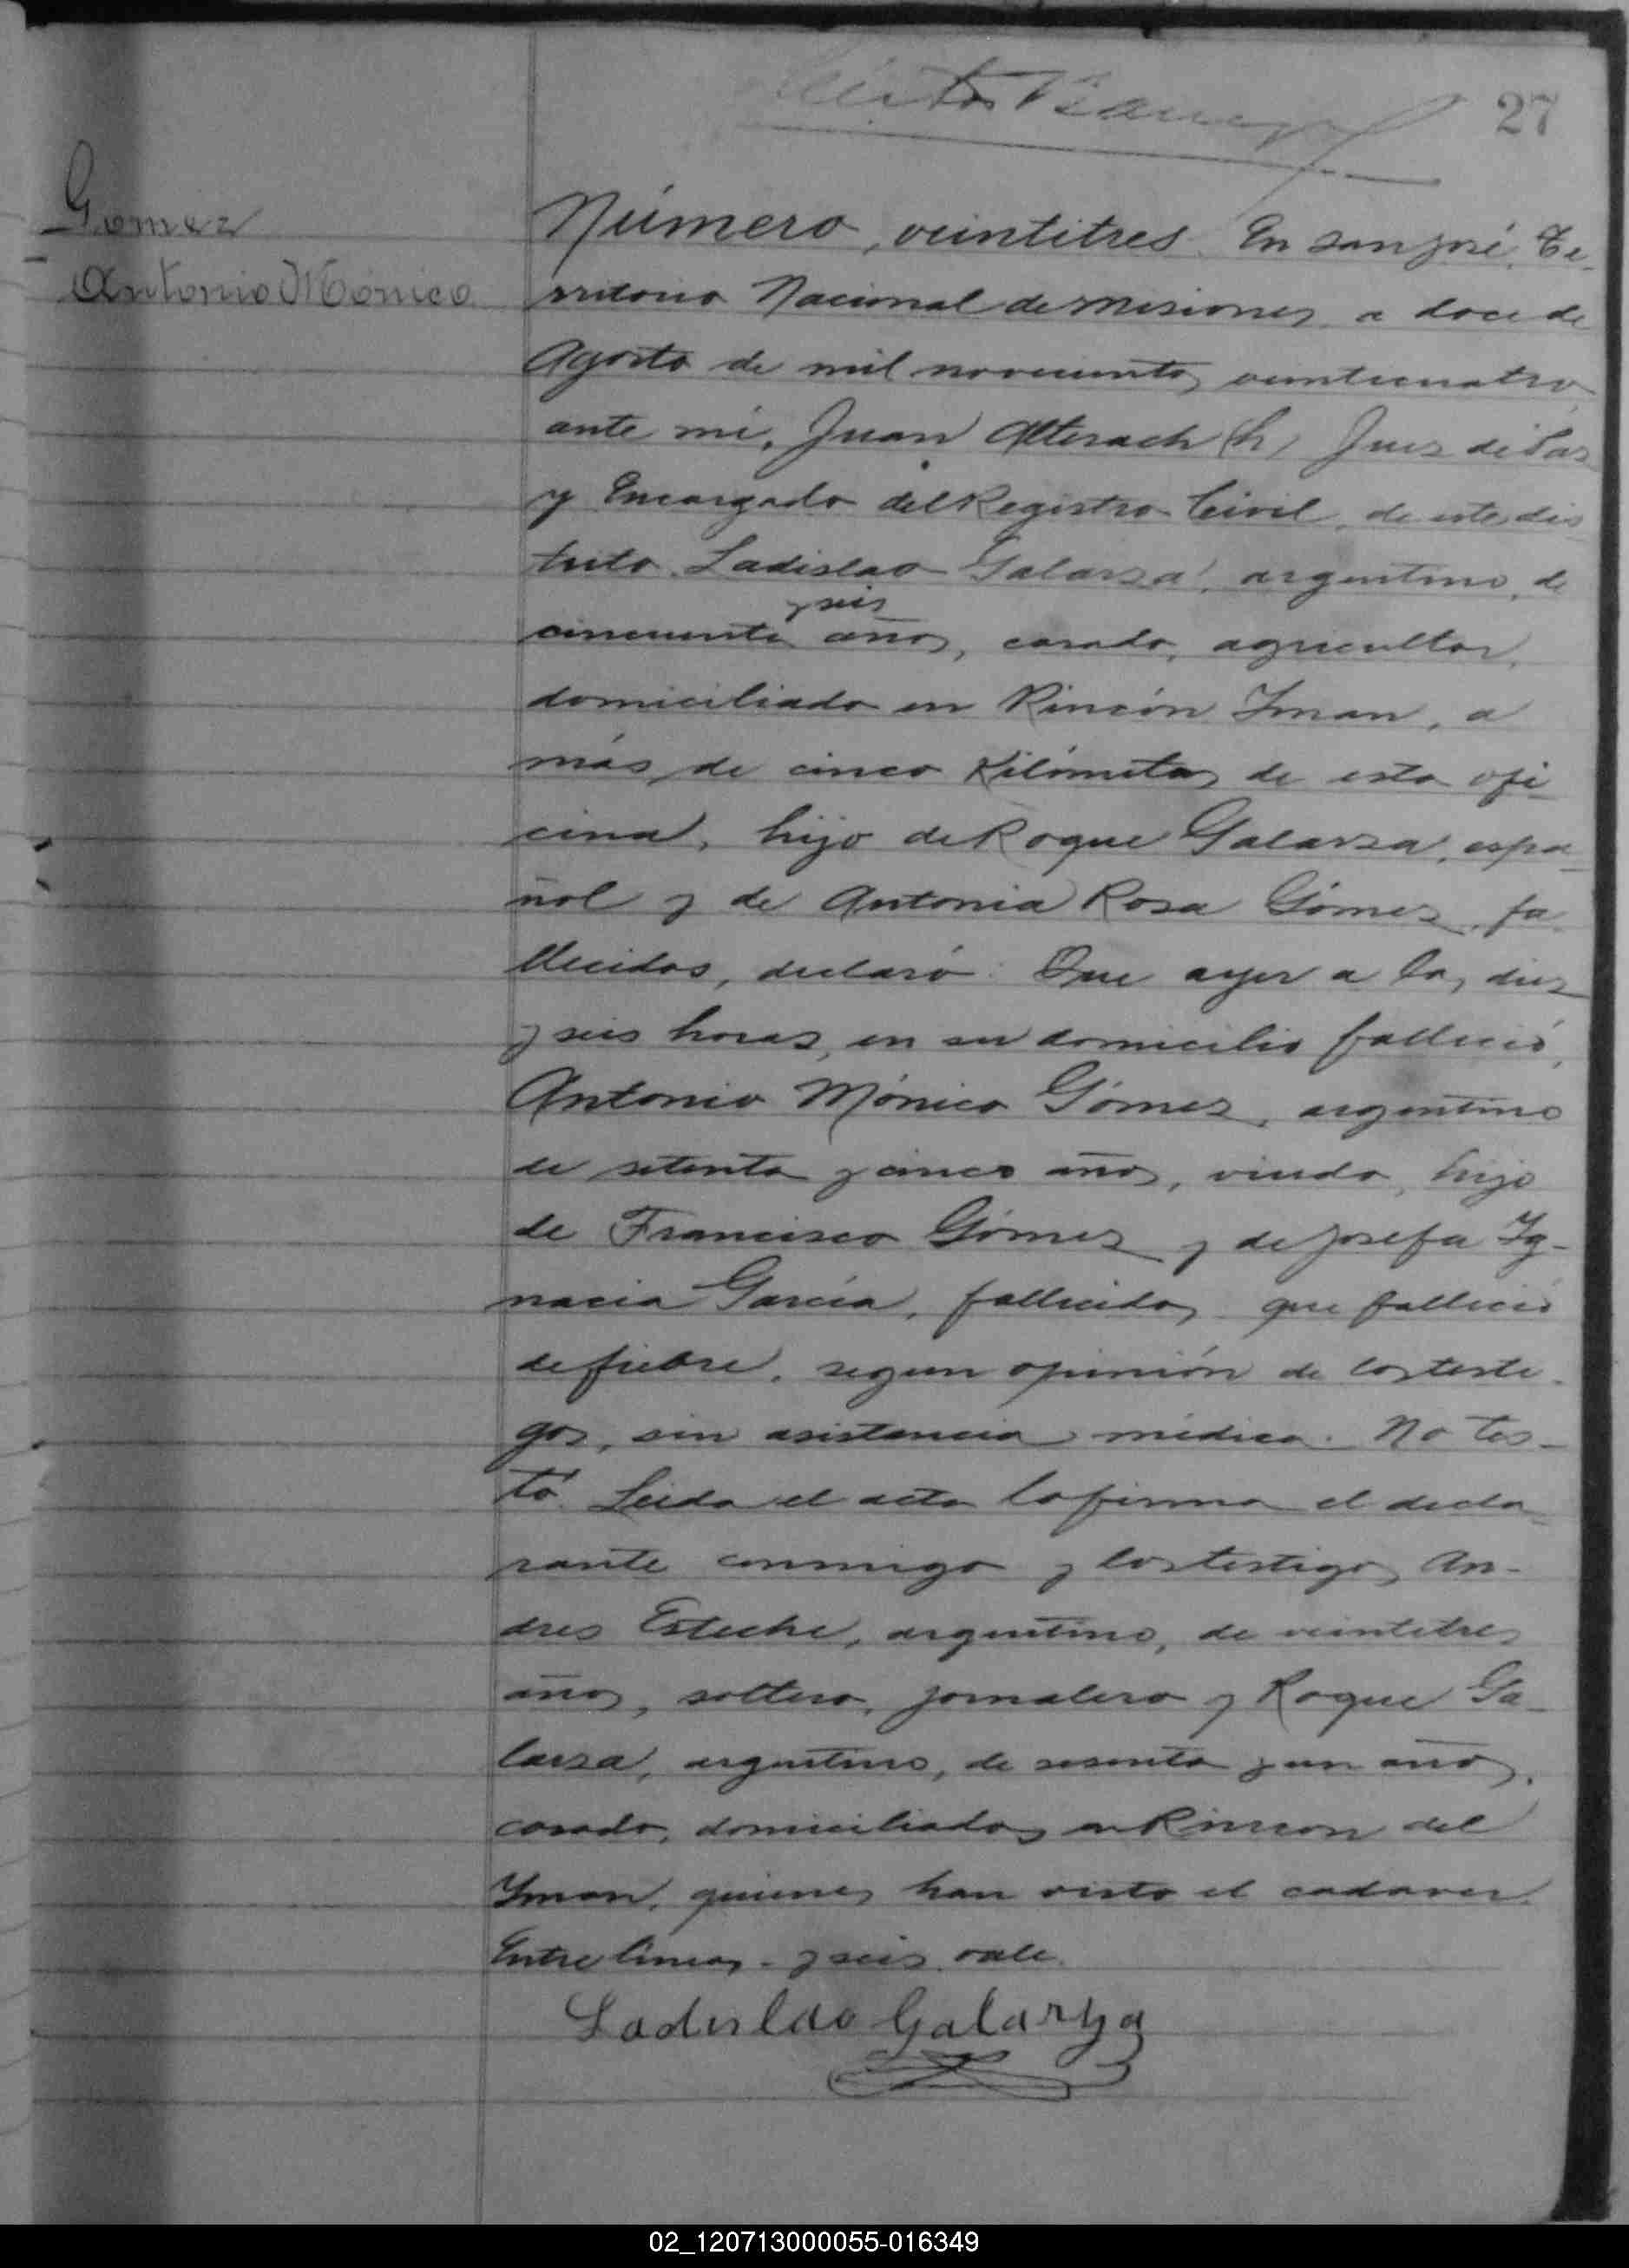 27
Gomez
Antonio Mónico
Número veintitres. En San José, Te-
rritorio Nacional de Misiones, a doce de
Agosto de mil novecientos veinticuatro
ante mi, Juan Alterach (h) Juez de Paz
y Encargado del Registro Civil, de este dis
trito. Ladislao Galarza, argentino, de
y seis
cincuenta años, casado, agricultor,
domiciliado en Rincón Iman, a
más de cinco Kilómetros de esta ofi
cina, hijo de Roque Galarza, espa-
ñol y de Antonia Rosa Gómez, fa
llecidos, declaró: Que ayer a las diez
y seis horas, en su domicilio falleció,
Antonio Mónico Gómez, argentino
de setenta y cinco años, viudo, hijo
de Francisco Gómez y de Josefa Ig-
nacia García, fallecidos, que falleció
de fiebre, segun opinión de los testi-
gos, sin asistencia médica. No tes-
tó. Leida el acta la firma el decla-
rante conmigo y los testigos An-
dres Esteche, argentino, de veintitres
años, soltero, jornalero y Roque Ga-
larza, argentino, de sesenta y un años,
casado, domiciliados en Rincon del
Iman, quienes han visto el cadaver.
Entre lineas - y seis. vale.
Ladislao Galarza
02_120713000055-016349